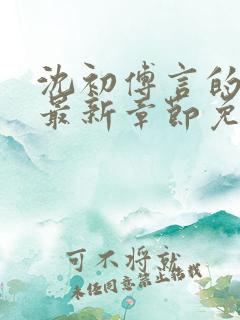 沈初傅言的
最新章节免
可不将就
未经同意禁止转载